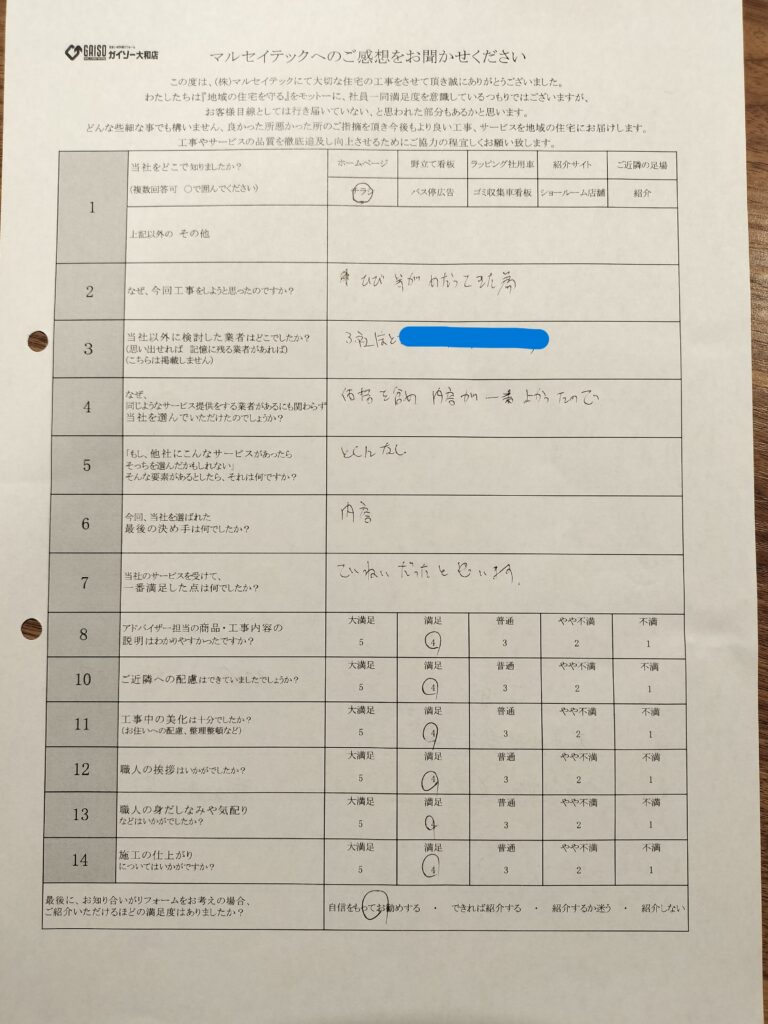 GAISO
ガイソー大和店
マルセイテックへのご感想をお聞かせください
この度は、(株)マルセイテックにて大切な住宅の工事をさせて頂き誠にありがとうございました。
わたしたちは『地域の住宅を守る』をモットーに、社員一同満足度を意識しているつもりではございますが、
お客様目線としては行き届いていない、と思われた部分もあるかと思います。
どんな些細な事でも構いません、良かった所悪かった所のご指摘を頂き今後もより良い工事、サービスを地域の住宅にお届けします。
工事やサービスの品質を徹底追及し向上させるためにご協力の程宜しくお願い致します。
1
当社をどこで知りましたか?
(複数回答可 ○で囲んでください)
ホームページ 野立て看板 ラッピング社用車 紹介サイト ご近隣の足場
チラシ バス停広告 ゴミ収集車看板 ショールーム店舗 紹介
上記以外の その他
2
なぜ、今回工事をしようと思ったのですか?
ひび 等が めだってきた為
3
当社以外に検討した業者はどこでしたか?
(思い出せれば 記憶に残る業者があれば)
(こちらは掲載しません)
3社ほど
4
なぜ、
同じようなサービス提供をする業者があるにも関わらず
当社を選んでいただけたのでしょうか?
価格を含め 内容が 一番 よかったので
5
「もし、他社にこんなサービスがあったら
そっちを選んだかもしれない」
そんな要素があるとしたら、それは何ですか?
とくになし
6
今回、当社を選ばれた
最後の決め手は何でしたか?
内容
7
当社のサービスを受けて、
一番満足した点は何でしたか?
ていねいだったと思います。
8
アドバイザー担当の商品・工事内容の
説明はわかりやすかったですか?
大満足 満足 普通 やや不満 不満
5 4 3 2 1
10
ご近隣への配慮はできていましたでしょうか?
大満足 満足 普通 やや不満 不満
5 4 3 2 1
11
工事中の美化は十分でしたか?
(お住いへの配慮、整理整頓など)
大満足 満足 普通 やや不満 不満
5 4 3 2 1
12
職人の挨拶はいかがでしたか?
大満足 満足 普通 やや不満 不満
5 4 3 2 1
13
職人の身だしなみや気配り
などはいかがでしたか?
大満足 満足 普通 やや不満 不満
5 4 3 2 1
14
施工の仕上がり
についてはいかがですか?
大満足 満足 普通 やや不満 不満
5 4 3 2 1
最後に、お知り合いがリフォームをお考えの場合、
ご紹介いただけるほどの満足度はありましたか?
自信をもってお勧めする ・ できれば紹介する ・ 紹介するか迷う ・ 紹介しない